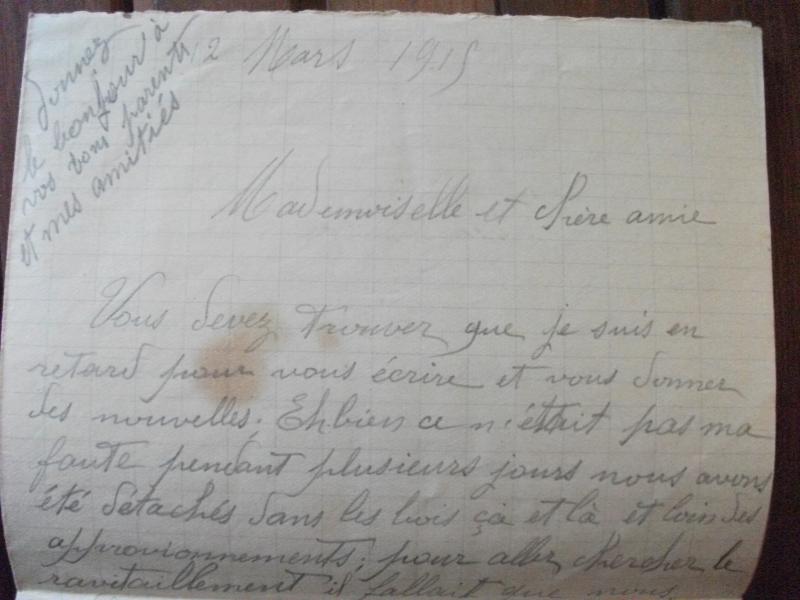 donnez
le bonjour à
vos bons parents
et mes amitiés
12 Mars 1915
Mademoiselle et chère amie
Vous devez trouver que je suis en
retard pour vous écrire et vous donner
des nouvelles. Eh bien ce n'était pas ma
faute pendant plusieurs jours nous avons
été détachés dans les bois çà et là et loin des
approvionnements; pour aller chercher le
ravitaillement il fallait que nous